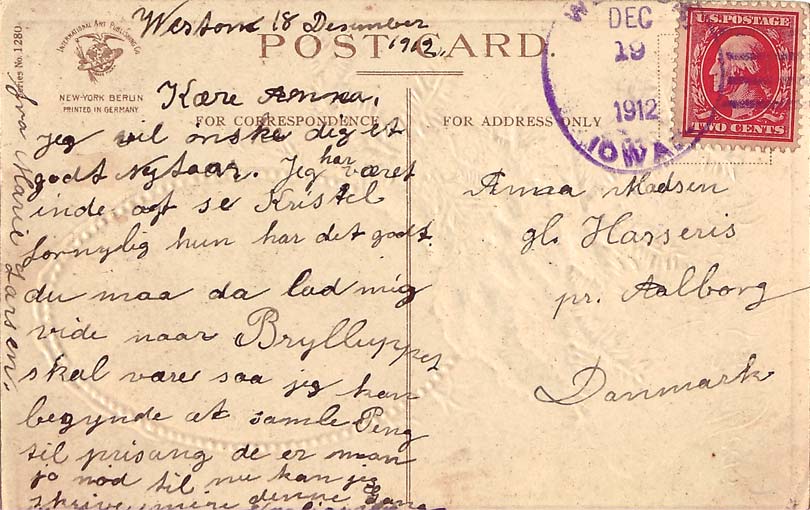 Weston 18 Desember
1912.
POST CARD.
INTERNATIONAL ART PUBLISHING CO.
NEW-YORK BERLIN
PRINTED IN GERMANY
Series No. 1280.
fra Marie Larsen.
FOR CORRESPONDENCE
Kære Anna.
jeg vil ønske dig et
godt Nytaar. Jeg har været
inde ogt se Kristel
fornylig hun har det godt.
du maa da lad mig
vide naar Brylluppet
skal være saa jeg kan
begynde at samle Peng
til prisang de er man
jo nød til nu kan jeg
skrive mere denne Gang
FOR ADDRESS ONLY
Anna Madsen
gl. Hasseris
pr. Aalborg
Danmark
DEC
19
1912
IOWA
U.S. POSTAGE
TWO CENTS